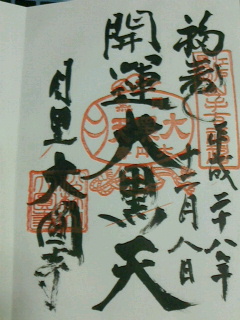 平成二十八年
十二月八日
開運大黒天
目黒 大圓寺